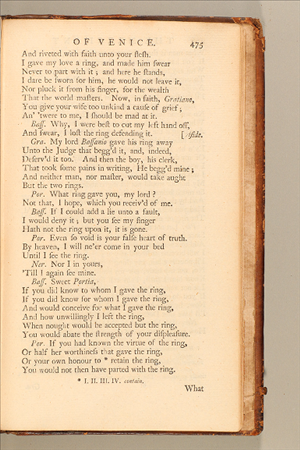 OF VENICE. 475
And riveted with faith unto your flesh.
I gave my love a ring, and made him swear
Never to part with it; and here he stands,
I dare be sworn for him, he would not leave it,
Nor pluck it from his finger, for the wealth
That the world masters. Now, in faith, Gratiano,
You give your wife too unkind a cause of grief;
An' 'twere to me, I should be mad at it.
Bass. Why, I were best to cut my left hand off,
And swear, I lost the ring defending it. [Aside.
Gra. My lord Bassanio gave his ring away
Unto the Judge that begg'd it, and, indeed,
Deserv'd it too. And then the boy, his clerk,
That took some pains in writing, He begg'd mine;
And neither man, nor master, would take aught
But the two rings.
Por. What ring gave you, my lord?
Not that, I hope, which you receiv'd of me.
Bass. If I could add a lie unto a fault,
I would deny it; but you see my finger
Hath not the ring upon it, it is gone.
Por. Even so void is your false heart of truth.
By heaven, I will ne'er come in your bed
Until I see the ring.
Ner. Nor I in yours,
'Till I again see mine.
Bass. Sweet Portia,
If you did know to whom I gave the ring,
If you did know for whom I gave the ring,
And would conceive for what I gave the ring,
And how unwillingly I left the ring,
When nought would be accepted but the ring,
You would abate the strength of your displeasure.
Por. If you had known the virtue of the ring,
Or half her worthiness that gave the ring,
Or your own honour to * retain the ring,
You would not then have parted with the ring.
* I. II. III. IV. contain,
What